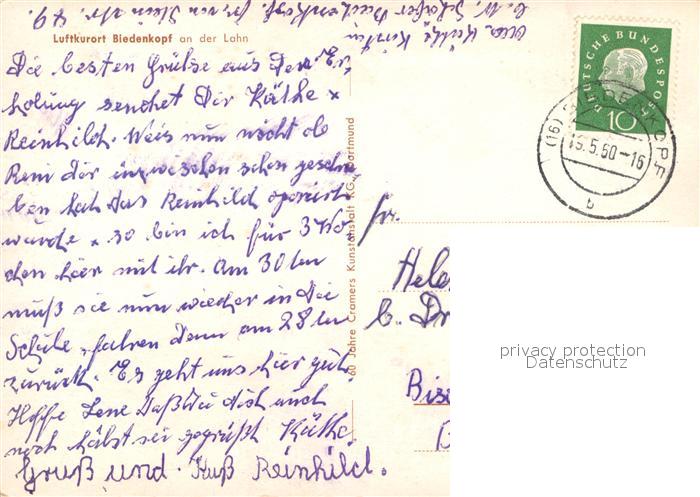 Luftkurort Biedenkopf an der Lahn
Die besten Grüße aus der Er-
holung sendet Dir Käthe x
Reinhild. Weis nun nicht ob
Reni dir inzwischen schon geschrie
ben hat das Reinhild operiert
wurde x so bin ich für 3 Wo
chen hier mit ihr. Am 30ten
muß sie nun wieder in die
Schule, fahren dann am 28ten
zurück. Es geht uns hier gut.
Hoffe Lene Daß Du dich auch
noch sei gegrüßt Käthe.
Gruß und Kuß Reinhild.
60 Jahre Cramers Kunstanstalt KG, Dortmund
DEUTSCHE BUNDESPOST
10
(16) BIEDENKOPF
5.60-16
b
Fr.
Hele
b. Dr
Bise
privacy protection
Datenschutz